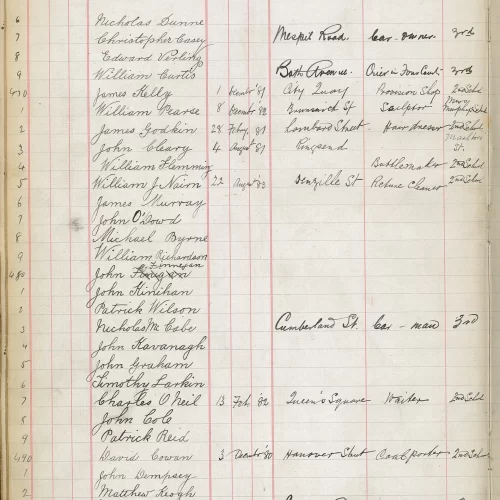 6 Nicholas Dunne
7 Christopher Casey Mespil Road. Car-owner 3rd
8 Edward Verling
9 William Curtis Bath Avenue. 3rd
470 James Kelly 1 Decembr '81 City Quay Provision Shop 2nd School
1 William Pearse 8 Decembr '82 Brunswick St Sculptor
2 James Godkin 28 Feby, '81 Lombard Street Hair dresser 2nd School
3 John Cleary 4 August '81 Ringsend
4 William Flemming Bottlemaker 2nd School
5 William J. Nairn 22 August '83 Denzille St Picture Cleaner 2nd School
6 James Murray
7 John O'Dowd
8 Michael Byrne
9 William Richardson
Finnegan
480 John
1 John Kinihan
2 Patrick Wilson
3 Nicholas McCabe Cumberland St. Car-man 3rd
4 John Kavanagh
5 John Graham
6 Timothy Larkin
7 Charles O'Neil 13 Feb '82 Queen's Square Waiter 2nd School
8 John Cole
9 Patrick Reid
490 David Cowan 3 Decembr '80 Hanover Street Coalporter 2nd Sch
1 John Dempsey
2 Matthew Keogh